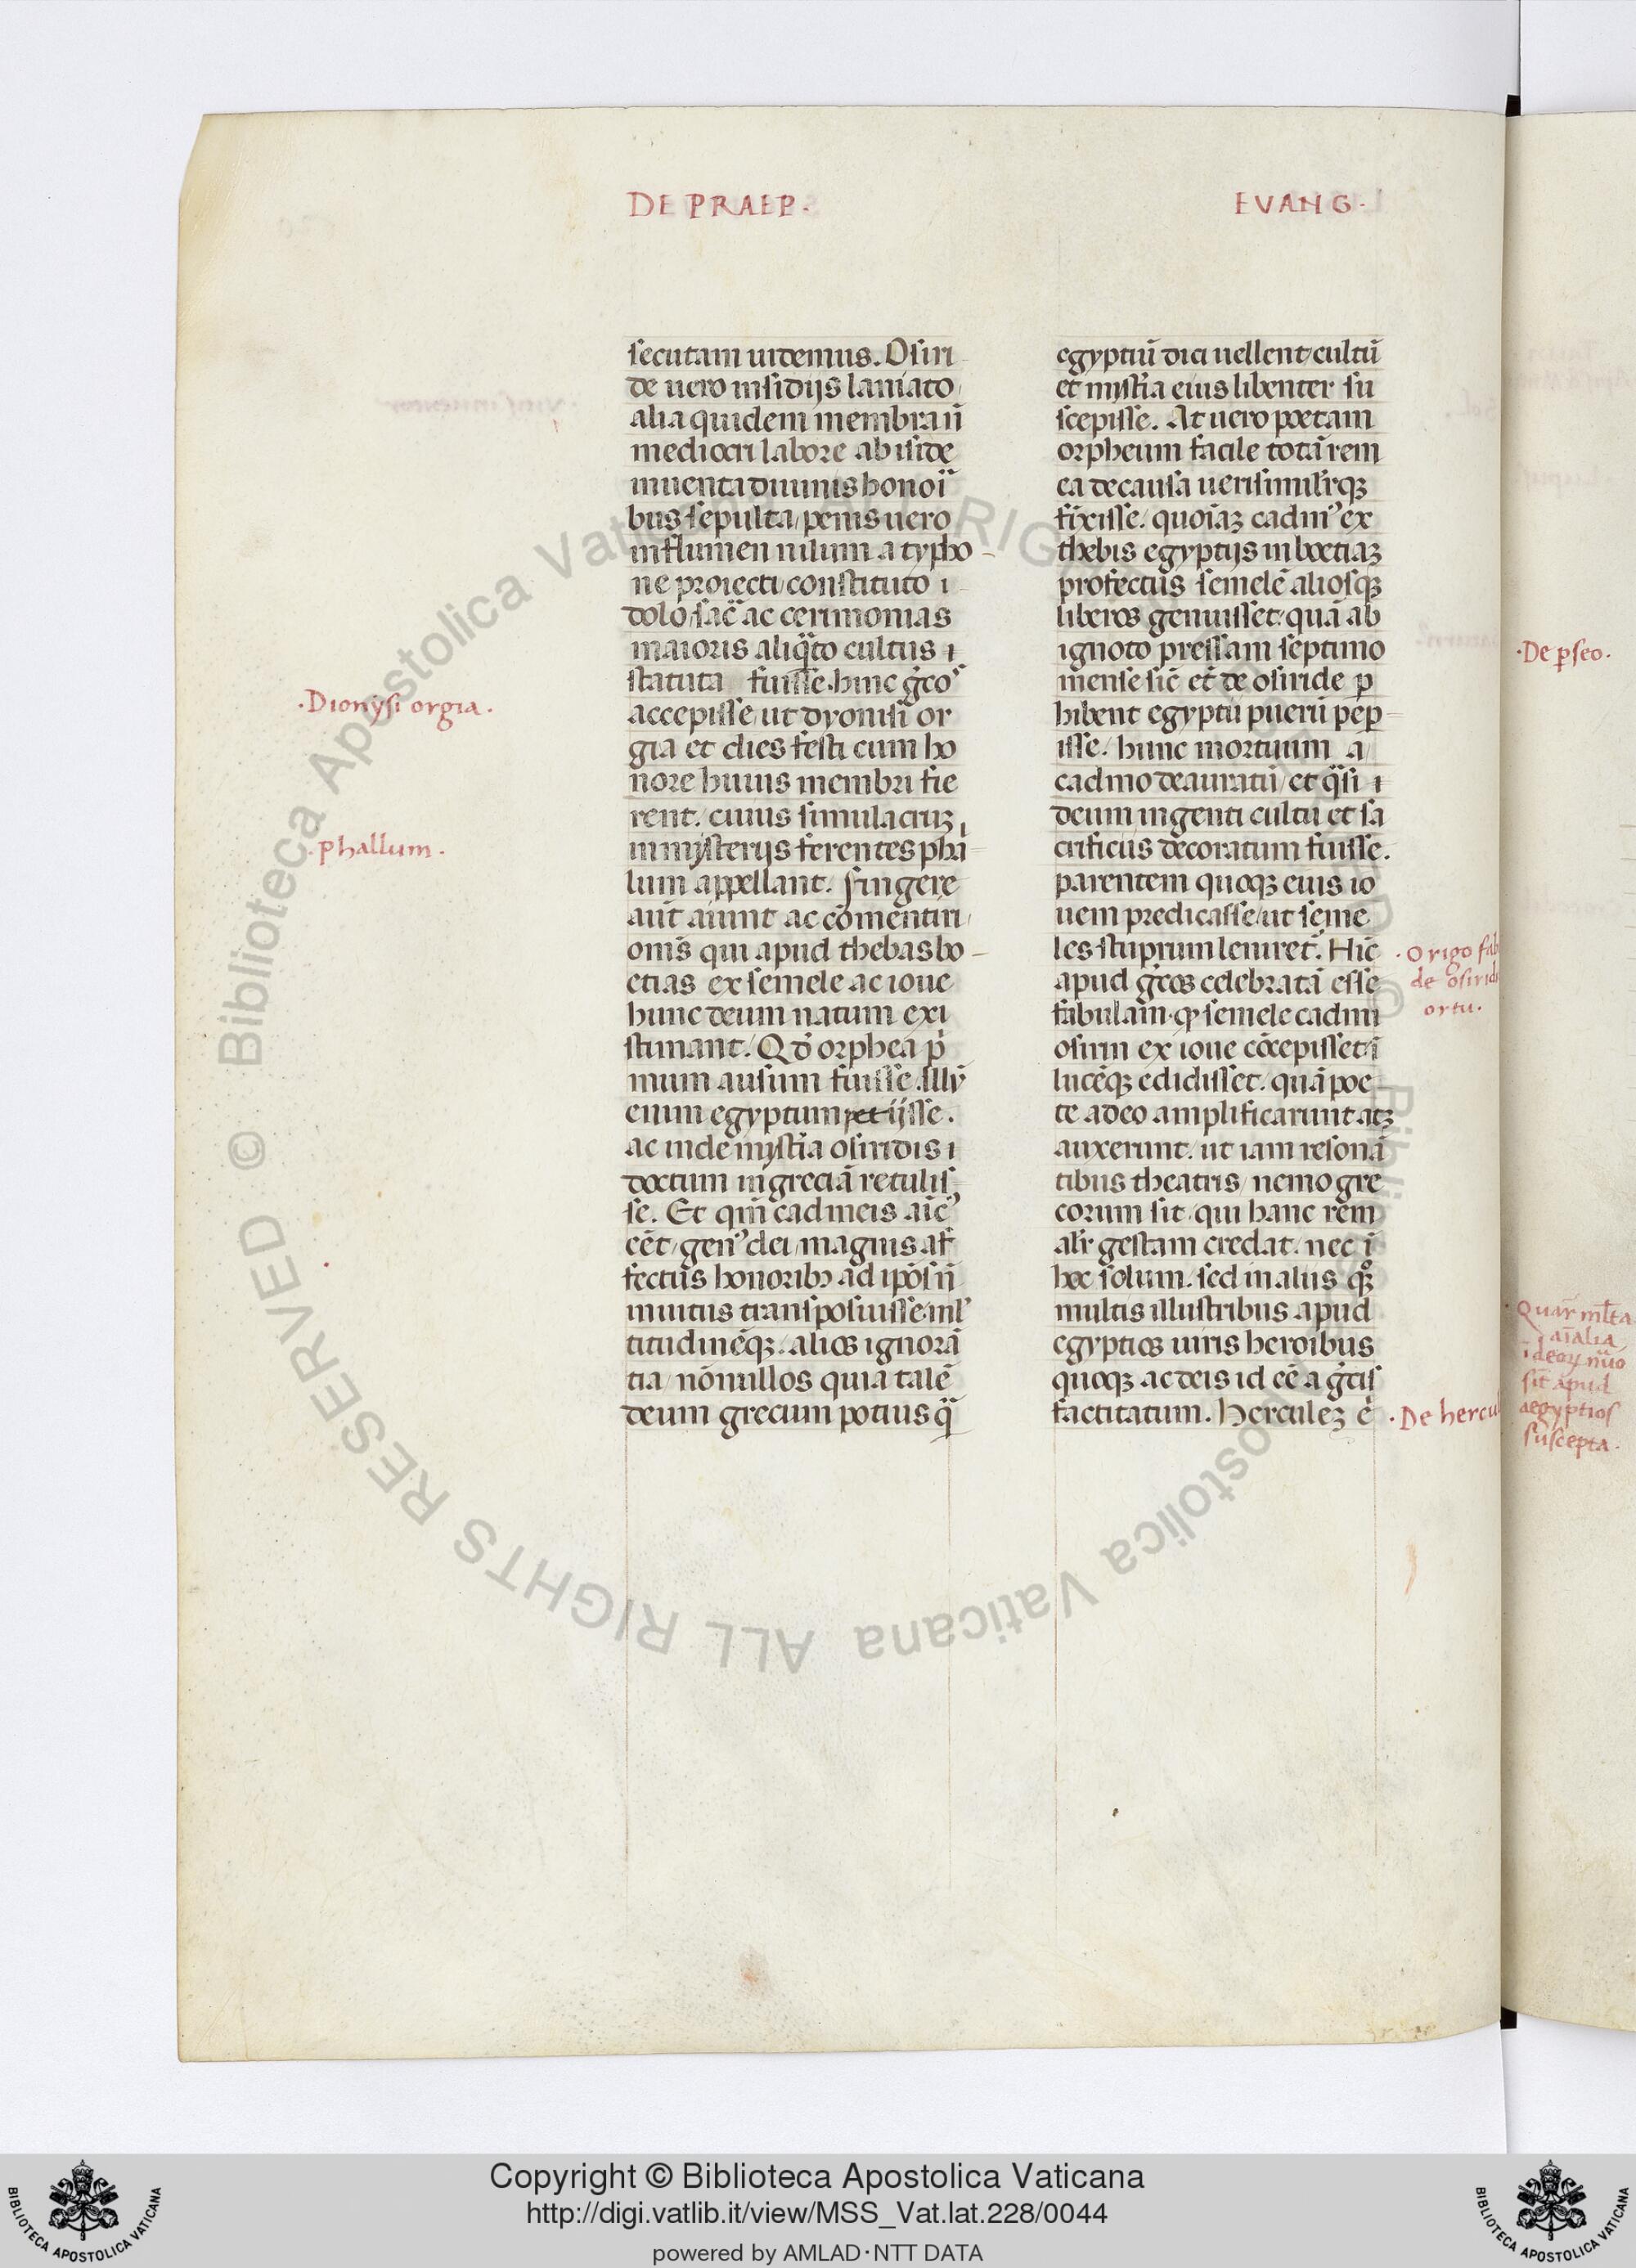 DE PRAEP.
secutam uidemus. Osiri
de uero insidijs laniato
alia quidem membra nō
mediocri labore ab iside
inuenta diuinis honoĩ
bus sepulta/ penis uero
in flumen nilum a typho-
ne proiecti/ constituto i
dolo/ sac̃ ac cerimonias
maioris aliq̃to cultus ı
statuta fuisse. hinc gͥcoˢ
accepisse/ ut dyonisii or
gia et dies festi cum ho
nore huius membri fie
rent. cuius simulacruz
in mysterijs ferentes phal
lum appellant. fingere
aut̃ aiunt ac cōmentiri
om̃s qui apud thebas bo-
etias ex semele ac ioue
hunc deum natum exi
stimant. Qd̃ orphea pͥ
mum ausum fuisse. Illũ
enim egyptum petijsse.
ac inde myst̃ia osiridis ı
doctum in greciã retulis
se. Et qm̃ cadmeis aĩcꝰ
eēt/ genꝰ dei/ magnis af
fectus honoribꝫ ad ip̃os ñ
inuitus transposuisse. ml̃
titudinēqꝫ. alios ignorã
tia/ nōnullos quia talē
deum grecum potius q̃
EVANG.
egyptiũ dici uellent/ cultũ
et myst̃ia eius libenter su
scepisse. At uero poetam
orpheum facile totã rem
ea de causa uerisimilr̃qꝫ
fixisse. quoĩaꝫ cadmꝰ ex
thebis egyptijs in boetiaꝫ
profectus semelē aliosqꝫ
liberos genuisset. quã ab
ignoto pressam septimo
mense sic̃ et de osiride ꝑ
hibent egyptii pueru peꝑ
isse. hunc mortuum a
cadmo deauratũ/ et q̃si ı
deum ingenti cultu et sa
crificiis decoratum fuisse.
parentem quoqꝫ eius io
uem predicasse/ ut seme
les stuprum leniret. Hĩc
apud gͥcos celebratã esse
fabulam. ꝙ semele cadmi
osirim ex ioue cōcepisset ĩ
lucēqꝫ edidisset. quã poe
te adeo amplificarunt atqꝫ
auxerunt. ut iam resonã
tibus theatris/ nemo gre
corum sit qui hanc rem
alr̃ gestam credat. nec ĩ
hoc solum. sed in aliis qͦꝫ
multis illustribus apud
egyptios uiris heroibus
quoqꝫ ac deis id eē a gͥcis
factitatum. Herculeꝫ e͂
.Dionysi orgia.
.phallum.
.Origo fab
de osirid
ortu.
.De hercul
.De ꝑseo.
Quar̃ ml̃ta
aĩalia
sit apud
aegyptios
suscepta.
© Biblioteca Apostolica Vaticana ALL RIGHTS RESERVED
© Biblioteca Apostolica Vaticana ALL RIGHTS RESERVED
BIBLIOTECA APOSTOLICA VATICANA
Copyright © Biblioteca Apostolica Vaticana
http://digi.vatlib.it/view/MSS_Vat.lat.228/0044
powered by AMLAD·NTT DATA
BIBLIOTECA APOSTOLICA VATICANA